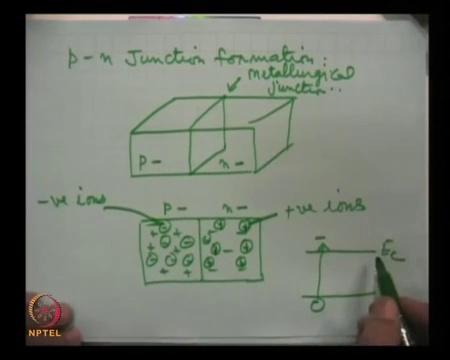 p-n Junction formation:
metallurgical
junction..
p- n-
-ve ions p- n- +ve ions
- Ec
NPTEL